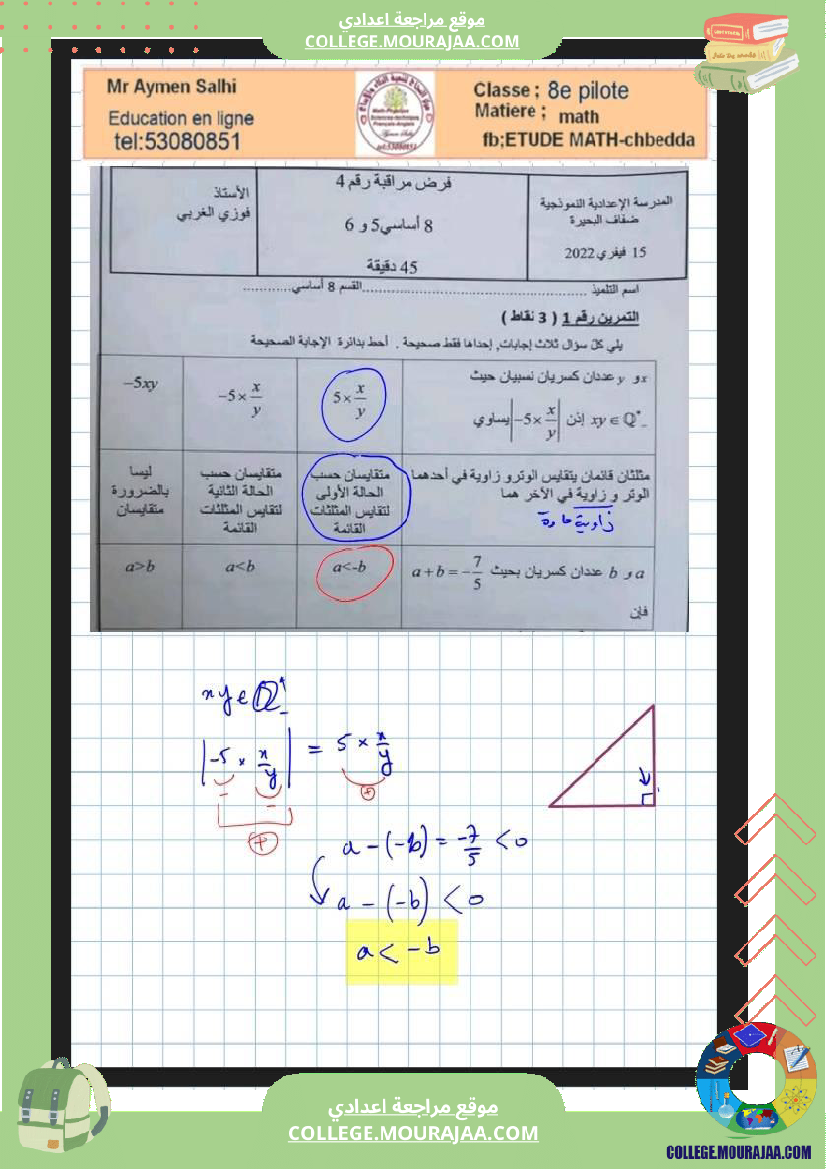 موقع مراجعة اعدادي
COLLEGE.MOURAJAA.COM
Mr Aymen Salhi
Education en ligne
tel:53080851
Classe ; 8e pilote
Matiere ; math
fb;ETUDE MATH-chbedda
المدرسة الإعدادية النموذجية
ضفاف البحيرة
15 فيفري 2022
فرض مراقبة رقم 4
8 أساسي5 و 6
45 دقيقة
الأستاذ
فوزي الغربي
اسم التلميذ ............................................القسم 8 أساسي............
التمرين رقم 1 ( 3 نقاط )
يلي كلّ سؤال ثلاث إجابات, إحداها فقط صحيحة . أحط بدائرة الإجابة الصحيحة
x و y عددان كسريان نسبيان حيث
xy ∈ ℚ*₋ إذن |-5 × x/y| يساوي
5 × x/y
-5 × x/y
-5xy
مثلثان قائمان يتقايس الوتر و زاوية في أحدهما
الوتر و زاوية في الآخر هما
زاوية حادة
متقايسان حسب
الحالة الأولى
لتقايس المثلثات
القائمة
متقايسان حسب
الحالة الثانية
لتقايس المثلثات
القائمة
ليسا
بالضرورة
متقايسان
a و b عددان كسريان بحيث a + b = -7/5
فإن
a<-b
a<b
a>b
xy ∈ ℚ*₋
|-5 × x/y| = 5 × x/y
- - +
+
a - (-b) = -7/5 < 0
a - (-b) < 0
a < -b
موقع مراجعة اعدادي
COLLEGE.MOURAJAA.COM
COLLEGE.MOURAJAA.COM